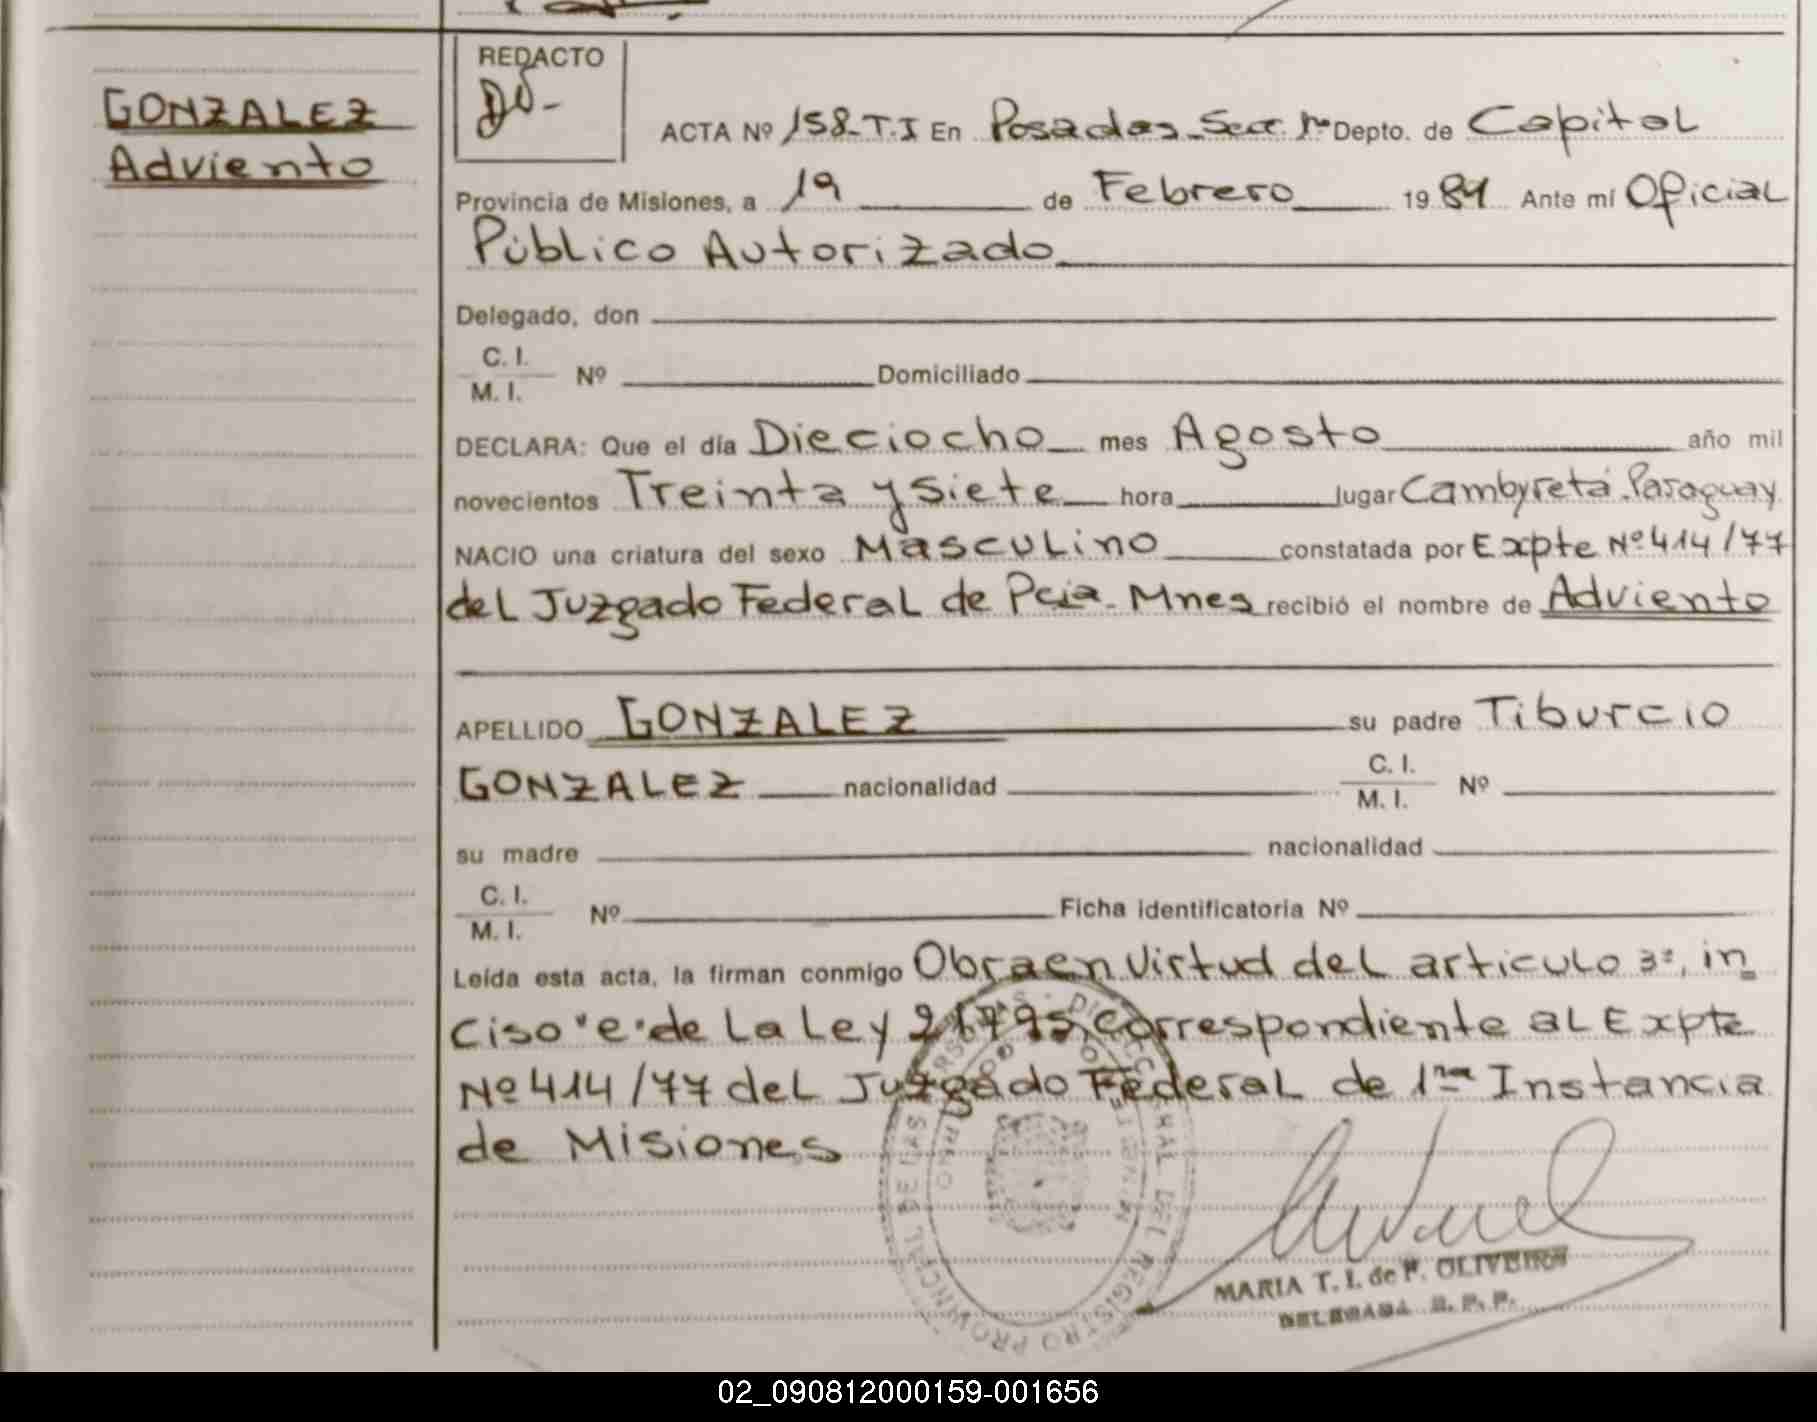 GONZALEZ
Adviento
REDACTO
ACTA Nº 158-T.I En Posadas-Secc. 1ra Depto. de Capital
Provincia de Misiones, a 19 de Febrero 1981 Ante mí Oficial
Público Autorizado
Delegado, don
C. I.
M. I. Nº Domiciliado
DECLARA: Que el día Dieciocho mes Agosto año mil
novecientos Treinta y siete hora lugar Cambyretá-Paraguay
NACIO una criatura del sexo Masculino constatada por Expte Nº 414/77
del Juzgado Federal de Pcia- Mnes recibió el nombre de Adviento
APELLIDO GONZALEZ su padre Tiburcio
GONZALEZ nacionalidad C. I.
M. I. Nº
su madre nacionalidad
C. I.
M. I. Nº Ficha identificatoria Nº
Leída esta acta, la firman conmigo Obra en virtud del articulo 3º, in=
ciso "e" de La Ley 21795, correspondiente al Expte
Nº 414/77 del Juzgado Federal de 1ra Instancia
de Misiones
MARIA T. I. de P. OLIVEIRA
DELEGADA R. P. P.
02_090812000159-001656